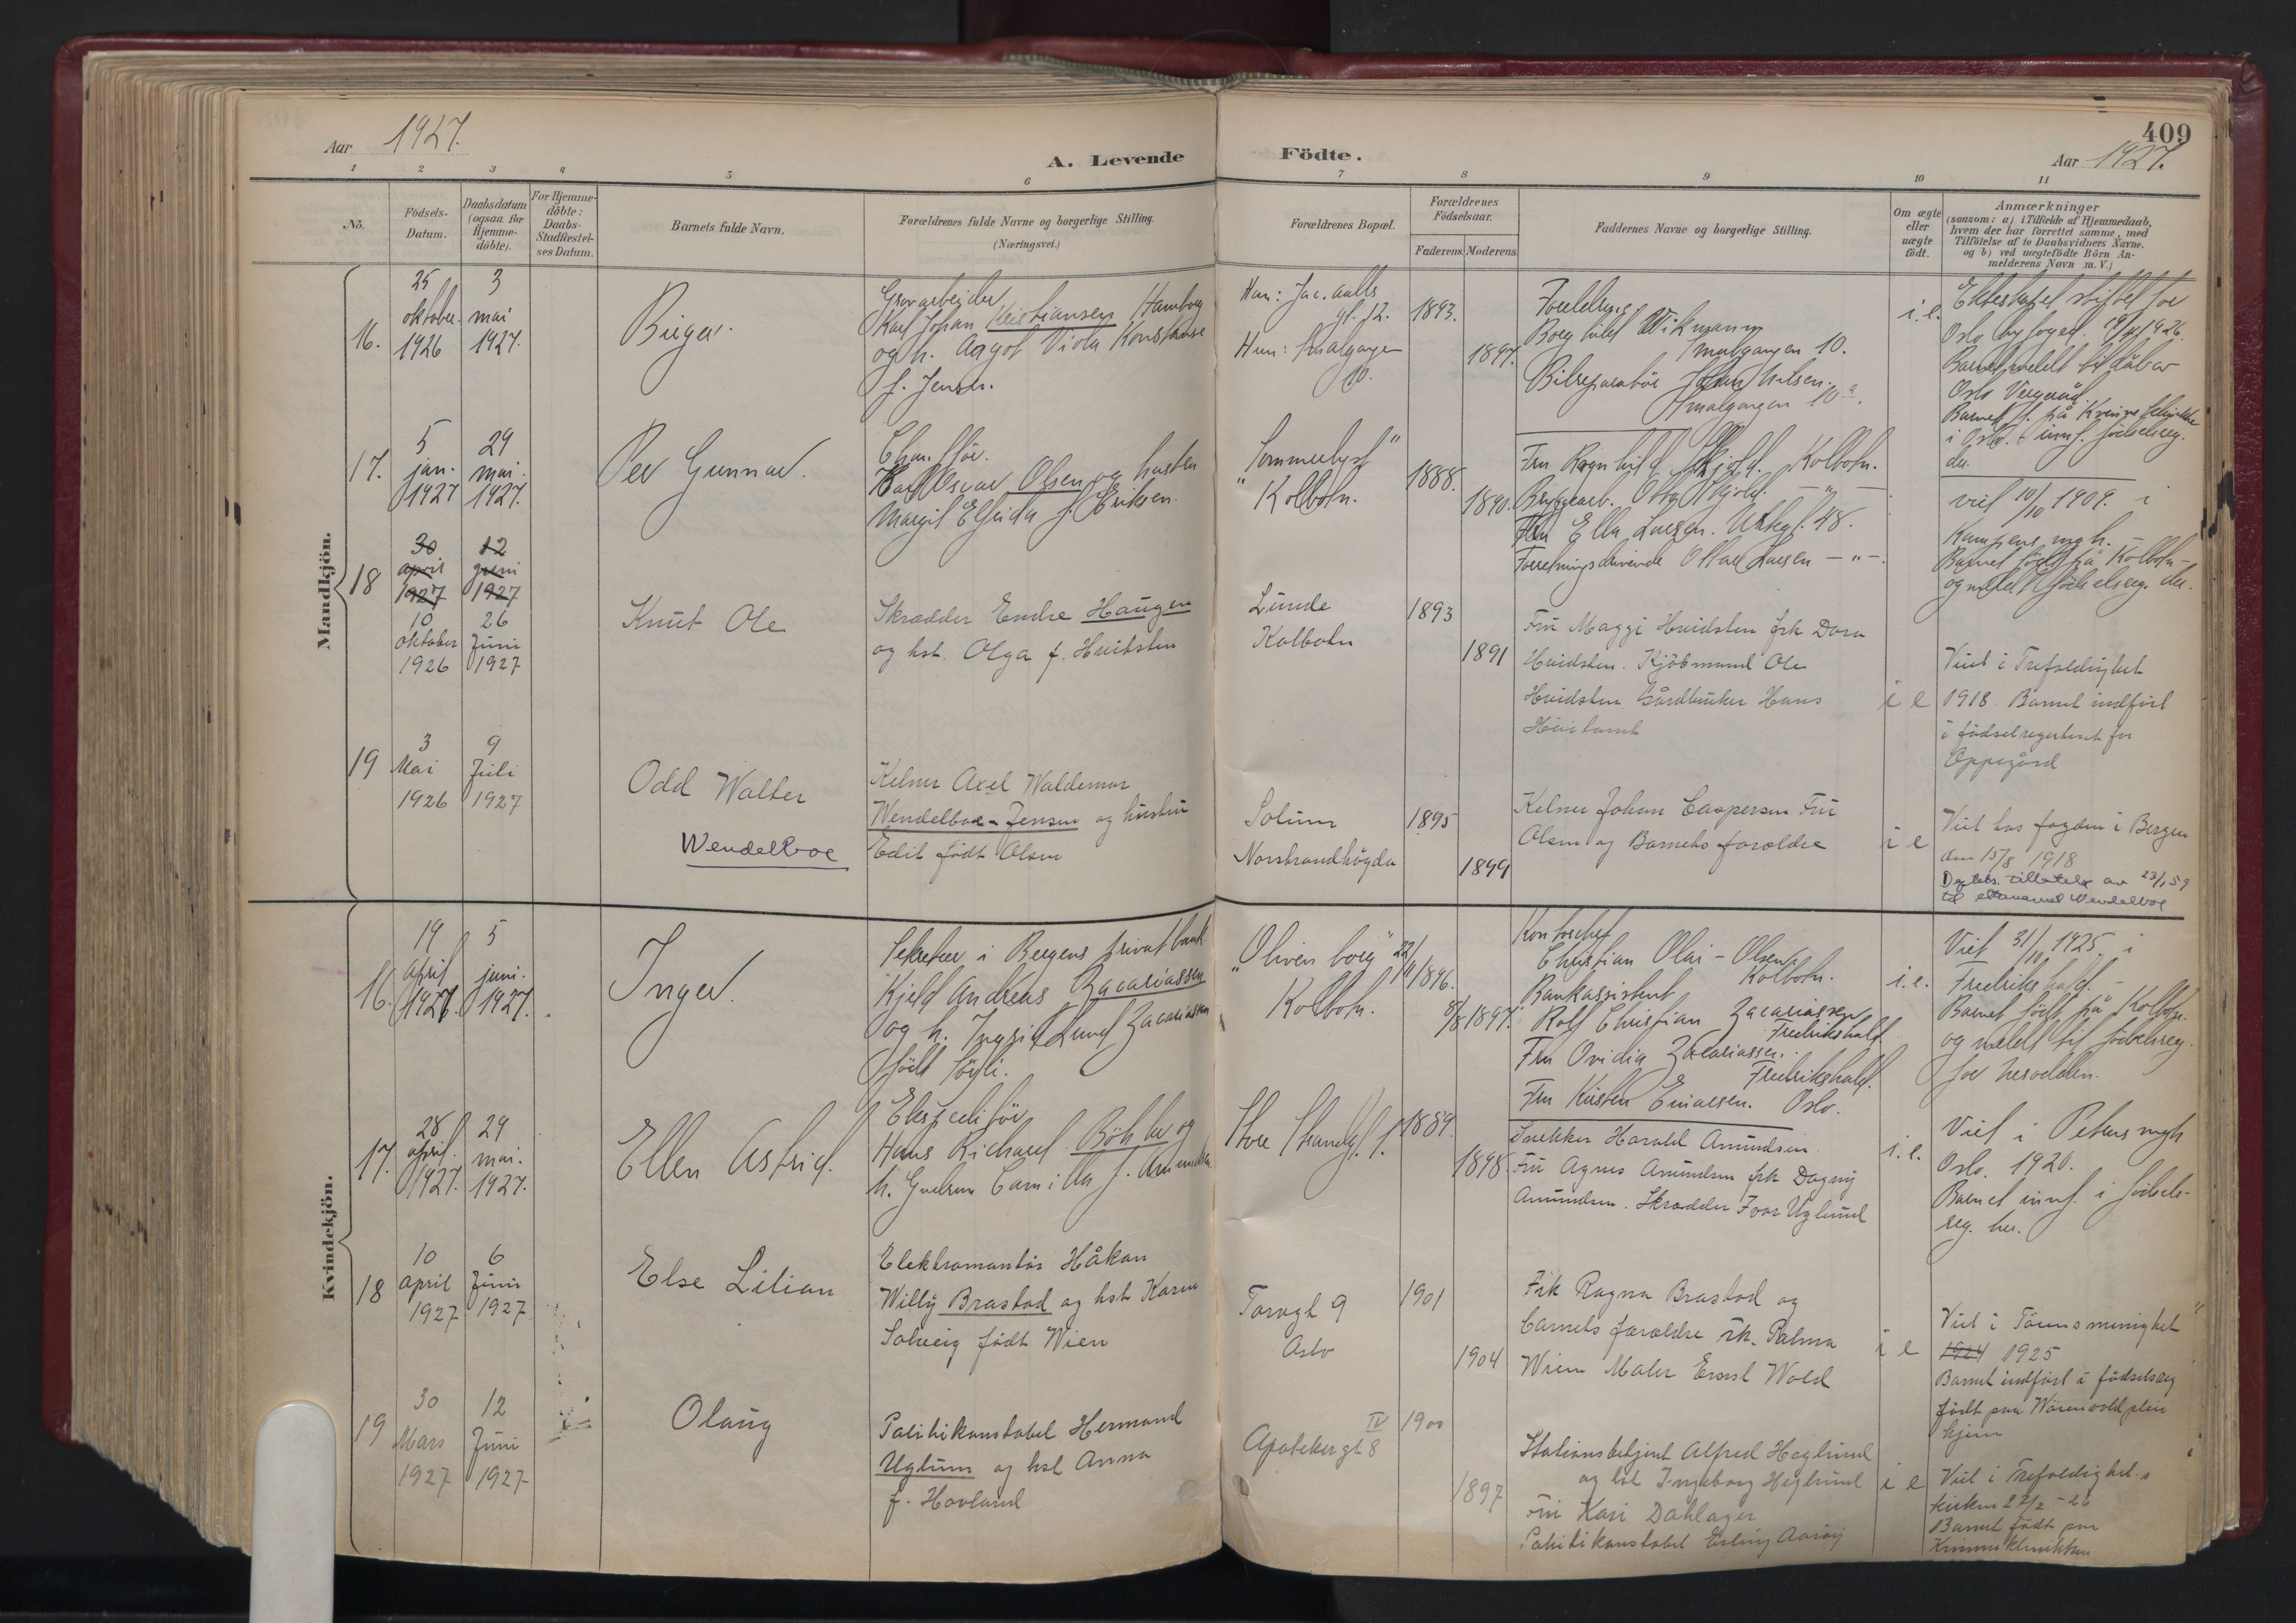 Aar 1927.
A. Levende
Födte.
409
Aar 1927.
1 2 3 4 5 6 7 8 9 10 11
No.
Födsels-
Datum.
Daabsdatum
(ogsaa for
Hjemme-
döbte).
For Hjemme-
döbte:
Daabs-
Stadfæstel-
ses Datum.
Barnets fulde Navn.
Forældrenes fulde Navne og borgerlige Stilling.
(Næringsvei.)
Forældrenes Bopæl.
Forældrenes
Födselsaar.
Faderens Moderens
Faddernes Navne og borgerlige Stilling.
Om ægte
eller
uægte
födt.
Anmærkninger
(saasom: a) i Tilfælde af Hjemmedaab,
hvem der har forrettet samme, med
Tilföielse af to Daabsvidners Navne.
og b) ved uægtefödte Börn An-
melderens Navn m. V.)
Mandkjön.
16.
25
oktober
1926
3
mai
1927.
Birger.
Grovarbejder
Karl Johan Kristiansen Hamborg
og h. Aagot Viola Konstanse
f. Jensen.
Han: Jac. Aalls
gt. 12.
Hun: Smalgangen
10.
1893.
1897.
Borghild Wikmann
Smalgangen 10.
Bilreparatör Johan Nilsen.
Smalgangen 10 a.
i. e.
Ekteskapet skiftet for
Oslo byfoged. 19/4 1926.
Barnet meldt til dåb av
Oslo Vergeråd.
Barnet f. på Kvinneklinikken
i Oslo. innf. födselsreg.
der.
17.
5
jan.
1927
29
mai
1927.
Per Gunnar.
Karl Oscar Olsen og hustru
Margit Elfrida f. Eriksen.
"Sommerlyst"
Kolbotn.
1888.
1890.
Fru Ragnhild Skjold. Kolbotn.
Byggearb. Otto Skjold. — " —
Fru Ella Larsen. 48.
Forretningsdrivende Ottar Larsen — " —.
viet 10/10 1909. i
Kampens mgh. —
Barnet födt på Kolbotn —
og meldt födselsreg. der.
18
30
april
1927
12
juni
1927
10
oktober
1926
26
Juni
1927
Knut Ole
Skrædder Endre Haugen
og hst. Olga f. Hvidsten
Lunde
Kolbotn
1893
1891
Fru Maggi Hvidsten frk Dora
Hvidsten. Kjöbmand Ole
Hvidsten Gårdbruker Hans
i e
Viet i Trefoldighet
1918. Barnet indfört
i födselregisteret for
Oppegård
19
3
Mai
1926
9
Juli
1927
Odd Walter
Wendelboe
Kelner Axel Waldemar
Wendelboe-Jensen og hustru
Edit födt Olsen
Solum
Norstrandhögda
1895
1899
Kelner Johan Caspersen Fru
Olsen og Barnets foreldre
i e
Viet hos fogden i Bergen
den 15/8 1918
Dep.tets. tillatelse av 23/1 59
til etternavnet Wendelboe
Kvindekjön.
16.
19
april
1927.
5
juni.
1927.
Inger.
Sekretær i Bergens privatbank
Kjeld Andreas Zacariassen
og h. Ingrid Lund Zacariassen
födt
"Olivenborg"
Kolbotn.
22/11 1896.
8/8 1897.
Kontorchef
Christian Olai-Olsen
Kolbotn.
Bankassistent
Rolf Christian Zacariassen
Fredrikshald
Fru Ovidia Zacariassen.
Fredrikshald.
Fru Kirsten Einarsen. Oslo.
i. e.
Viet 31/10 1925. i
Fredrikshald. —
Barnet födt på Kolbotn.
og meldt til födselsreg.
for Nesodden.
17.
28
april.
1927.
29
mai.
1927.
Ellen Astrid.
Ekspeditör
Hans Richard Böhler og
h. Gudrun Camilla f. Amundsen
Store Strandgt. 1.
1889.
1898.
Snekker Harald Amundsen
Fru Agnes Amundsen frk Dagny
Amundsen. Skrædder Ivar Uglund
i. e.
Viet i Petrus mgh
Oslo. 1920.
Barnet innf. i födsels-
reg. her.
18
10
april
1927
6
Juni
1927
Else Lilian
Elektromontör Håkon
Willy Brastad og hst Karen
Solveig födt Wien
Torvgt 9
Oslo
1901
1904
Frk Ragna Brastad og
barnets foreldre Frk. Palma
Wien Maler Ernst Wold
i e
1924 1925
Barnet indfört i födselsreg
hjem
19
30
Mars
1927
12
Juni
1927
Olaug
Politikonstabel Hermand
Uglum og hst Anna
f. Hovland
Apotekergt 8 IV
1900
1897
Stationsbetjent Alfred Heglund
og hst Ingeborg Heglund
Fru Kari Dahlager
Politikonstabel Erling Aarøy
i e
Viet i Trefoldighet.s
kirken 27/2 - 26
Barnet födt paa
Kvinneklinikken